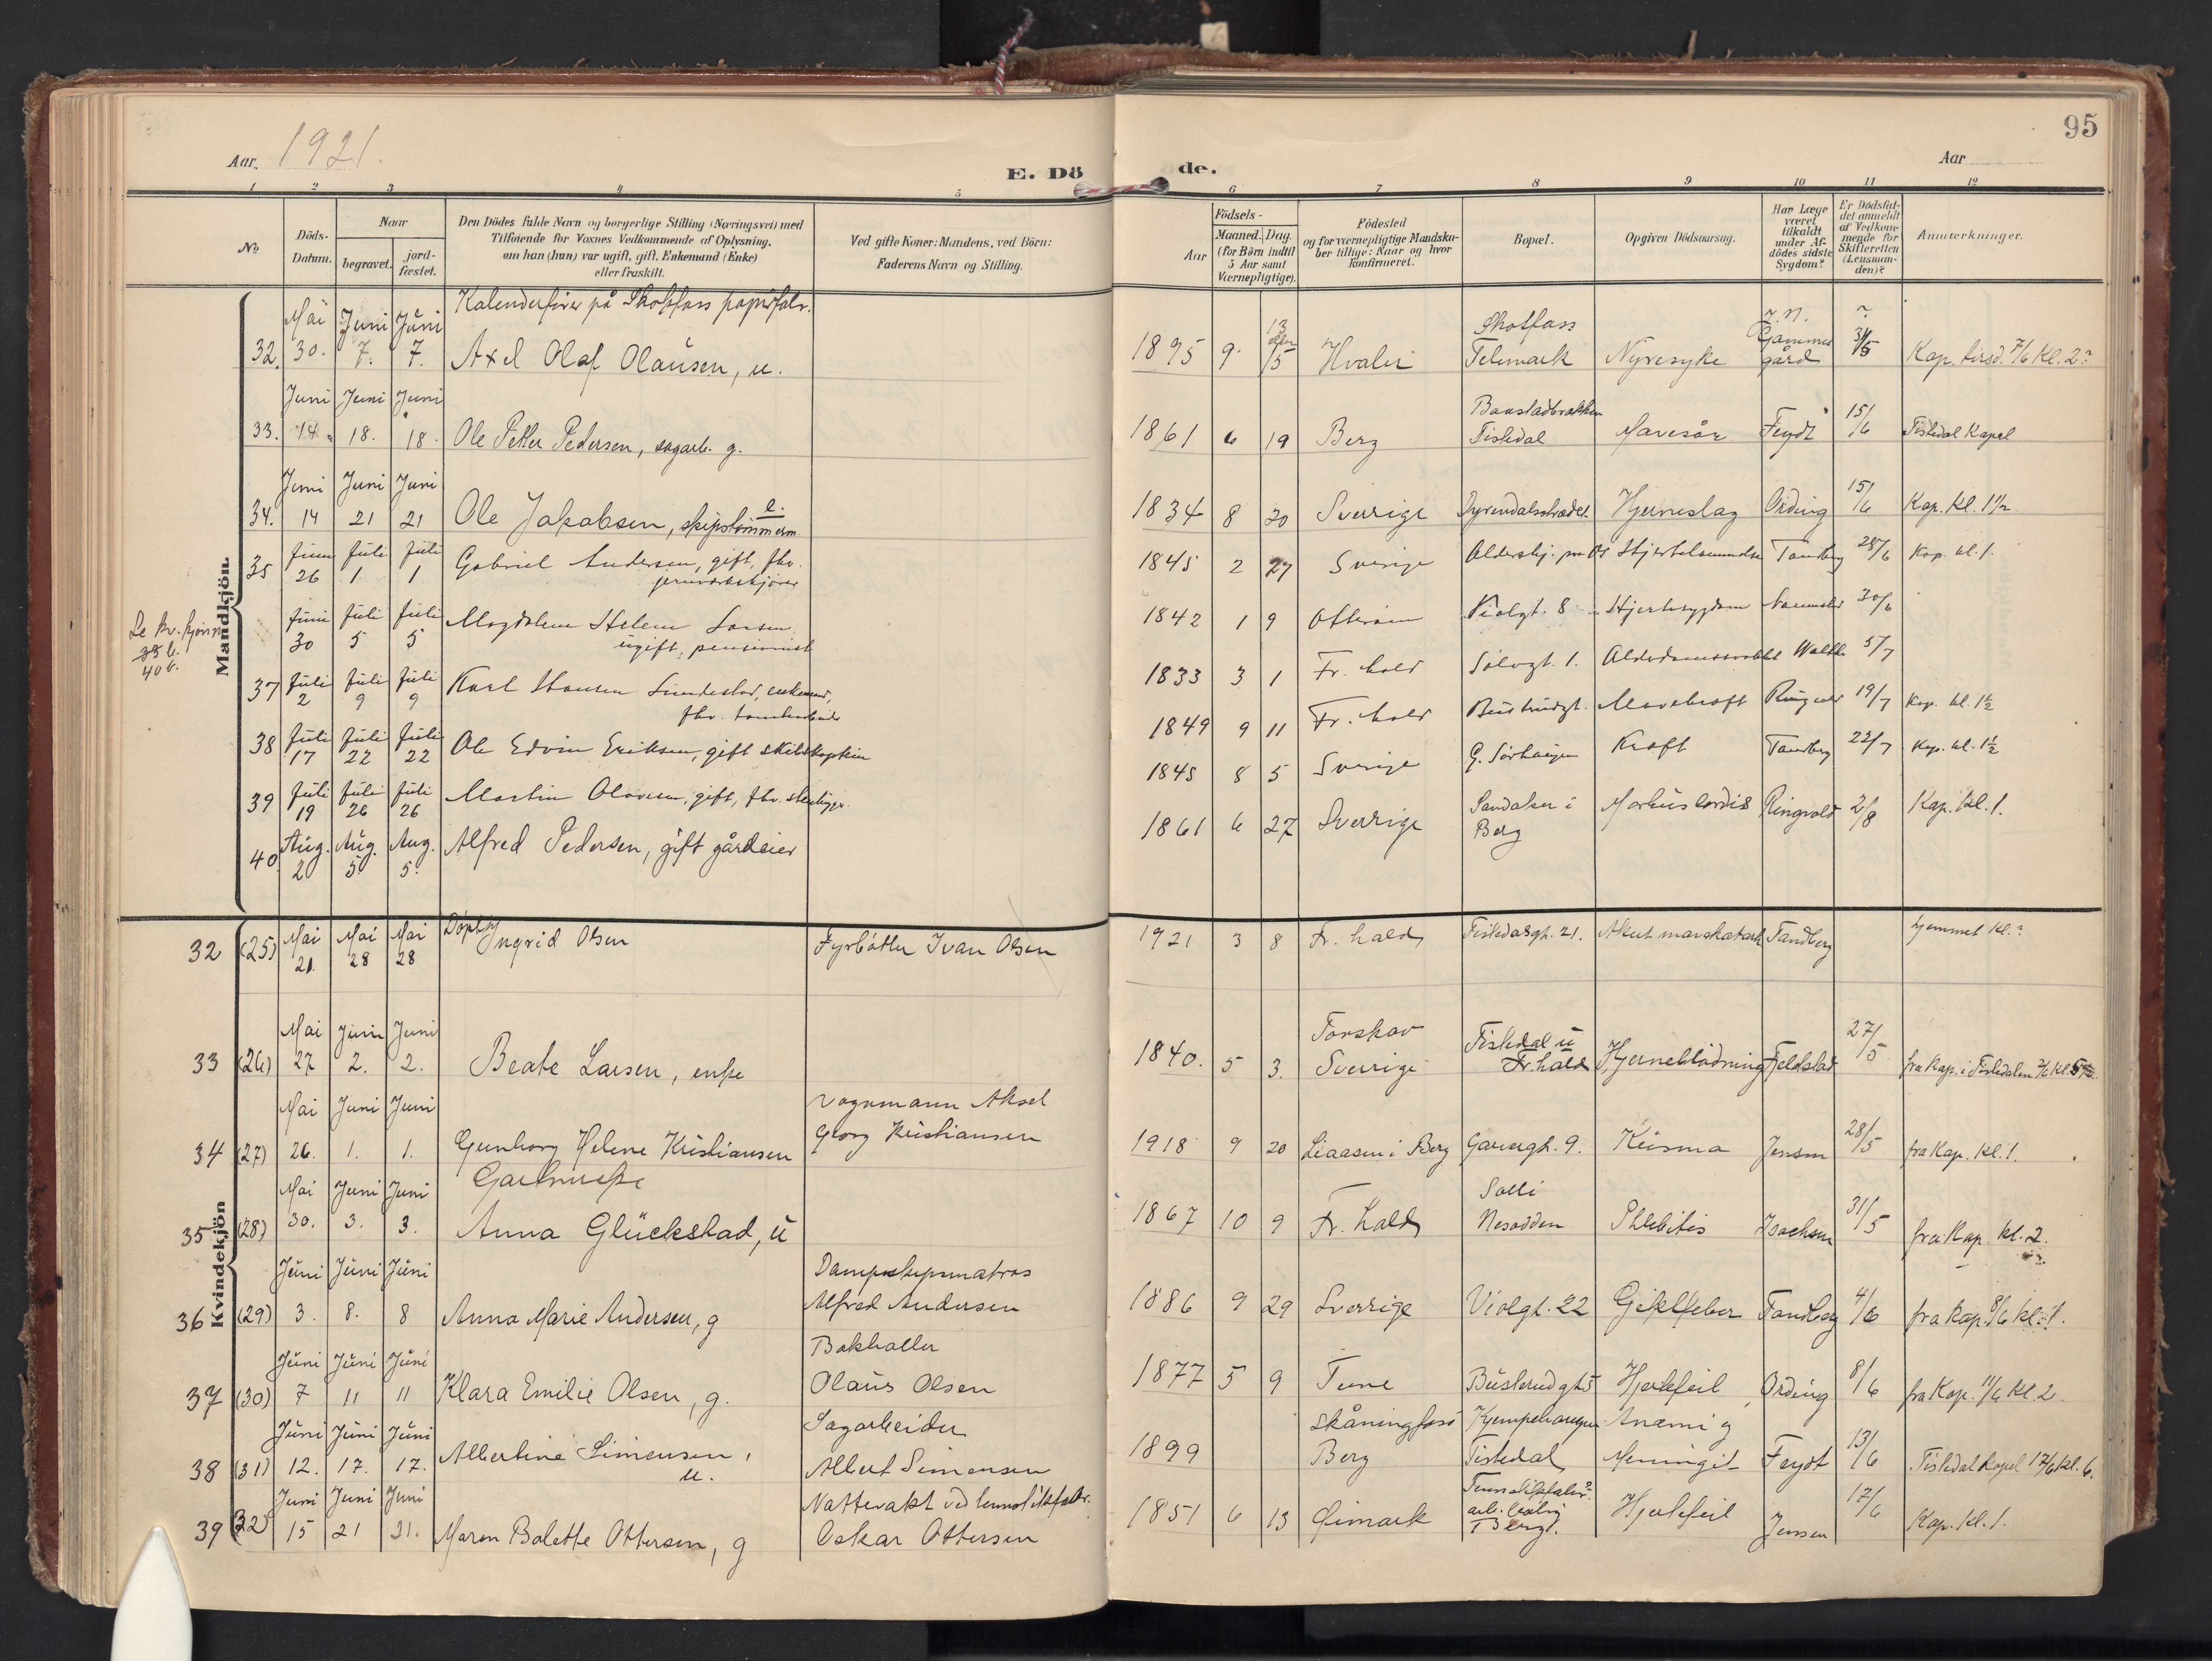 95
Aar. 1921.
E. Dö de.
Aar
1 2 3 4 5 6 7 8 9 10 11 12
No
Döds-Datum.
Naar
begravet.
jord-fæstet.
Den Dödes fulde Navn og borgerlige Stilling (Næringsvei) med
Tilföiende for Voxnes Vedkommende af Oplysning,
om han (hun) var ugift, gift, Enkemand (Enke)
eller fraskilt.
Ved gifte Koner: Mandens, ved Börn:
Faderens Navn og Stilling.
Födsels-
Aar
Maaned. Dag.
(for Börn indtil
5 Aar samt
Værnepligtige).
Födested
og for værnepligtige Mandska-
ber tillige: Naar og hvor
konfirmeret.
Bopæl.
Opgiven Dödsaarsag.
Har Læge
været
tilkaldt
under Af-
dödes sidste
Sygdom?
Er Dödsfal-
det anmeldt
af Vedkom-
mende for
Skifteretten
(Lensman-
den)?
Anmærkninger.
Mandkjön.
Mai Juni Juni Kalenderfører på Skotfoss papirfabr. 13 Skotfoss ?
32. 30. 7. 7. Axel Olaf Olausen, u. 1895 9. 15 Hvaler Telemark Nyresyke Gammelgård 31/5 Kap. tirsd. 7/6 kl. 2?
Juni Juni Juni
33. 14 18. 18. Ole Petter Pedersen, sagarb. g. 1861 6 19 Berg Tistedal Mavesår Feydt 15/6 Tistedal Kapel
Juni Juni Juni
34. 14 21 21 Ole Jakobsen, skipstømmerm. e. 1834 8 20 Sverrige Dyrendalsstrædet Hjerneslag Ording 15/6 Kap. Kl. 1½
Juni Juli Juli
35 26 1 1 Gabriel Andersen, gift, fhv. 1845 2 27 Sverige Tandberg 28/6 Kap. kl. 1.
Se kv. kjønn
38 b.
40 b.
Juni Juli Juli
30 5 5 Magdalene Helene Larsen 1842 1 9 Violgt. 8 Hjertesygdom 30/6
ugift, pensionist
Juli Juli Juli
37 2 9 9 Karl Hansen Sundeslad, enkemand, 1833 3 1 Fr. hald Sølvgt. 1. 5/7
Juli Juli Juli
38 17 22 22 Ole Edvin Eriksen, gift skibskaptein 1849 9 11 Fr. hald Busterudgt. Mavekræft Ringvold 19/7 Kap. kl. 1½
Juli Juli Juli
39 19 26 26 Martin Olavesen, gift, fhv. 1845 8 5 Sverige Kræft Tandberg 22/7 Kap. kl. 1½
Aug. Aug. Aug.
40 2 5 5 Alfred Pedersen, gift gårdeier 1861 6 27 Sverrige Sandaker i Berg Morbus cordis Ringvold 2/8 Kap. Kl. 1.
Kvindekjön
Mai Mai Mai
32 (25) 21. 28 28 Døpt Ingrid Olsen Fyrbøter Ivan Olsen 1921 3 8 Fr. hald Tistedalsgt. 21. Tandberg hjemmet kl.?
Mai Juni Juni
33 (26) 27 2. 2. Beate Larsen, enke 1840. 5 3. Torskov Sverrige Tistedal u Fr. hald Hjerneblødning Fjeldstad 27/5 fra Kap. i Tistedalen 2/6 kl.
Mai Juni Juni Vognmann Aksel
34 (27) 26. 1. 1. Gunborg Helene Kristiansen Georg Kristiansen 1918 9 20 Liaasen i Berg Garvergt. 9. Jensen 28/5 fra Kap. Kl. 1.
Mai Juni Juni Solli
35 (28) 30. 3. 3. Anna Glückstad, u 1867 10 9 Fr. hald Nesodden Phlebitis Isachsen 31/5 fra Kap. kl. 2.
Juni Juni Juni Dampskipsmatros
36 (29) 3. 8. 8 Anna Marie Andersen, g Alfred Andersen 1886 9 29 Sverrige Violgt. 22 Giktfeber Tandberg 4/6 fra Kap. 8/6 kl. 1.
Juni Juni Juni Bokholler
37 (30) 7 11 11 Klara Emilie Olsen, g. Olaus Olsen 1877 5 9 Tune Busterudgt 5 Hjertefeil Ording 8/6 fra Kap. 11/6 kl 2.
Juni Juni Juni Sagarbeider Skåningfoss Kjempehaugen Anæmi og
38 (31) 12. 17. 17. Albertine Simensen, u. Albert Simensen 1899 Berg Tistedal Meningit Feydt 13/6 Tistedal Kapel 17/6 kl. 6.
Juni Juni Juni Nattevakt ved
39 (32) 15 21 21. Maren Bolette Ottersen, g Oskar Ottersen 1851 6 13 Øimark Berg. Hjertefeil Jensen 17/6 Kap. kl. 1.